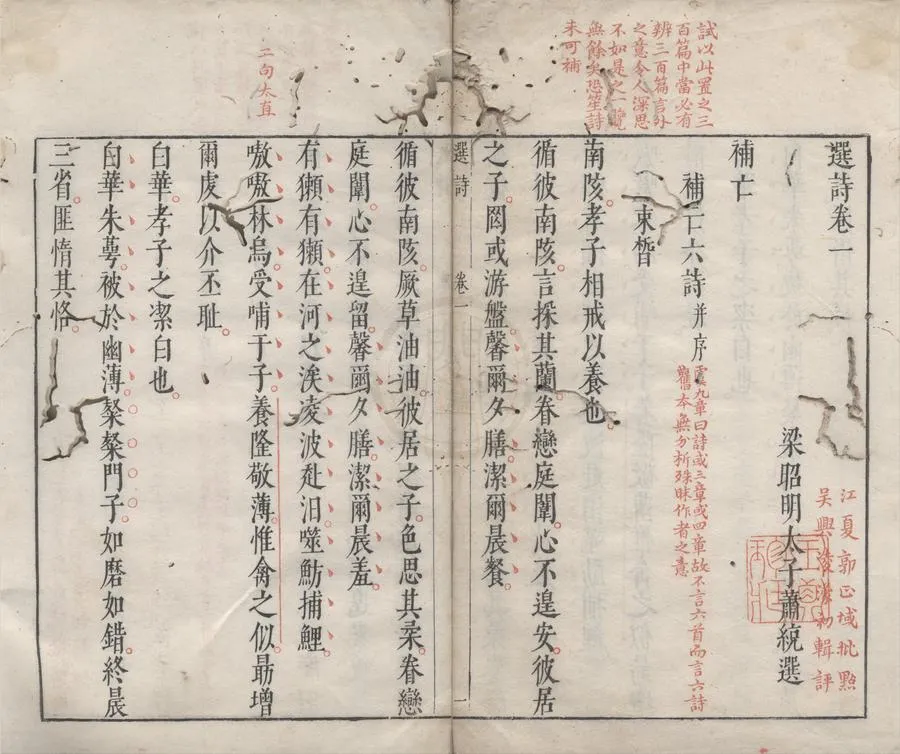 試以此置之三
百篇中當必有
辨三百篇言外
之意令人深思
不如是之一覽
無餘矣恐笙詩
未可補
選詩卷一
梁昭明太子蕭統選
江夏郭正域批點
吳興淩濛初輯評
補亡
補亡六詩并序
虞九章曰詩或三章或四章故不言六首而言六詩
舊本無分析殊昧作者之意
束晳
南陔孝子相戒以養也
循彼南陔言採其蘭眷戀庭闈心不遑安彼居
之子罔或游盤馨爾夕膳潔爾晨餐
選詩
卷一
一
循彼南陔厥草油油彼居之子色思其柔眷戀
庭闈心不遑留馨爾夕膳潔爾晨羞
有獺有獺在河之涘凌波赴汨噬魴捕鯉
嗷嗷林烏受哺于子養隆敬薄惟禽之似勗增
爾虔以介丕耻
二句太直
白華孝子之潔白也
白華朱萼被於幽薄粲粲門子如磨如錯終晨
三省匪惰其恪